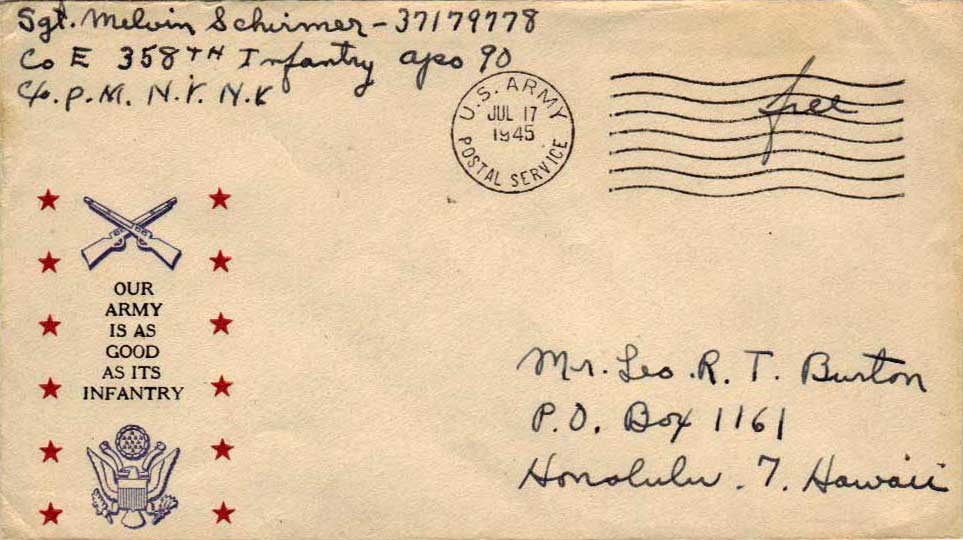 Sgt. Melvin Schirmer - 37179778
Co E 358TH Infantry apo 90
C/o. P.M. N.Y. N.Y
U.S. ARMY
JUL 17
1945
POSTAL SERVICE
free
OUR
ARMY
IS AS
GOOD
AS ITS
INFANTRY
Mr. Leo .R. T. Burton
P.O. Box 1161
Honolulu . 7. Hawaii